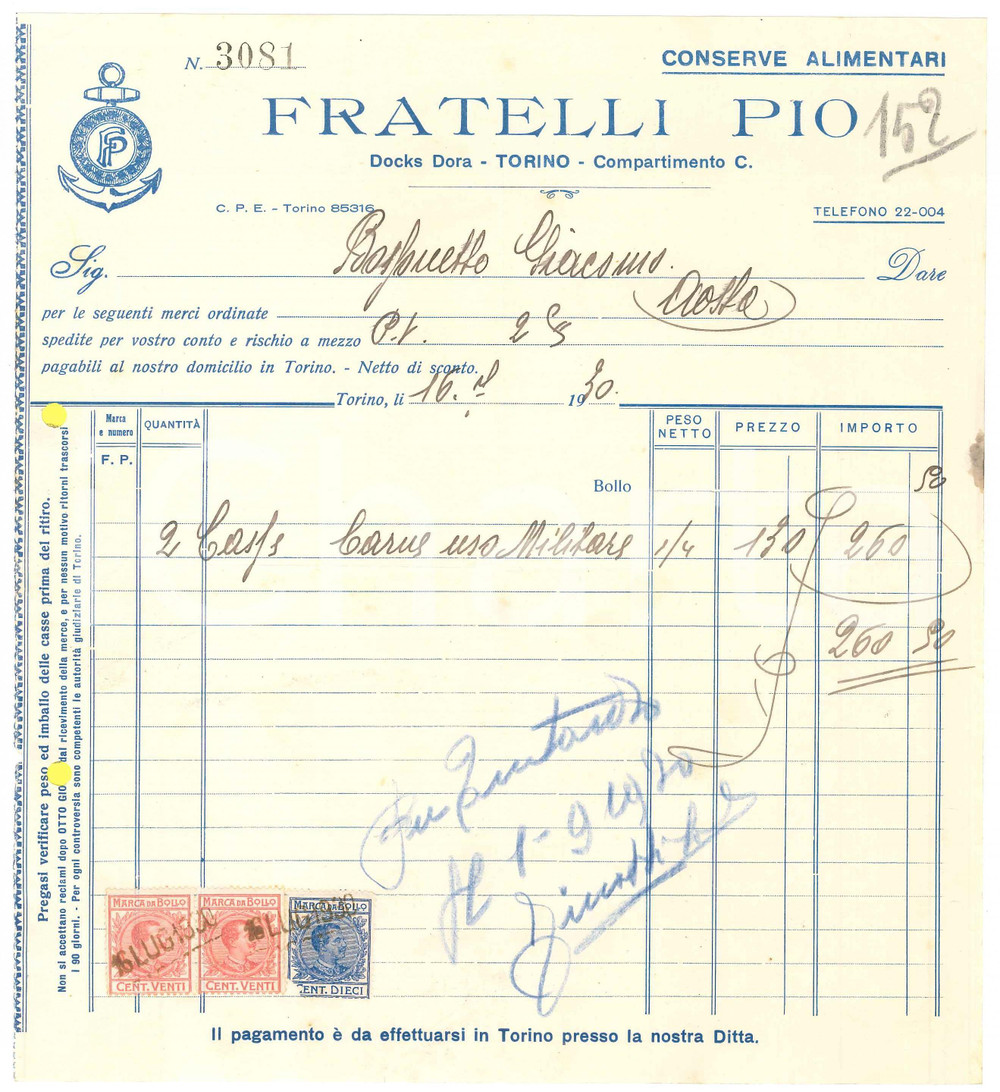 N. 3081
CONSERVE ALIMENTARI
FRATELLI PIO
152
FP
Docks Dora - TORINO - Compartimento C.
C. P. E. - Torino 85316
TELEFONO 22-004
Sig. Giacomo Dare
Aosta
per le seguenti merci ordinate
spedite per vostro conto e rischio a mezzo P.V. 2
pagabili al nostro domicilio in Torino. - Netto di sconto.
Torino, li 16. 7 1930.
Marca e numero QUANTITÀ PESO NETTO PREZZO IMPORTO
F. P.
Bollo 50
2 Casse Carne uso Militare 1/4 130 260
260 50
Per Quietanza
1-9 1930
Pregasi verificare peso ed imballo delle casse prima del ritiro.
Non si accettano reclami dopo OTTO GIO dal ricevimento della merce, e per nessun motivo ritorni trascorsi
i 90 giorni. - Per ogni controversia sono competenti le autorità giudiziarie di Torino.
MARCA DA BOLLO MARCA DA BOLLO MARCA DA BOLLO
16 LUG 1930 16 LUG 1930
CENT. VENTI CENT. VENTI CENT. DIECI
Il pagamento è da effettuarsi in Torino presso la nostra Ditta.